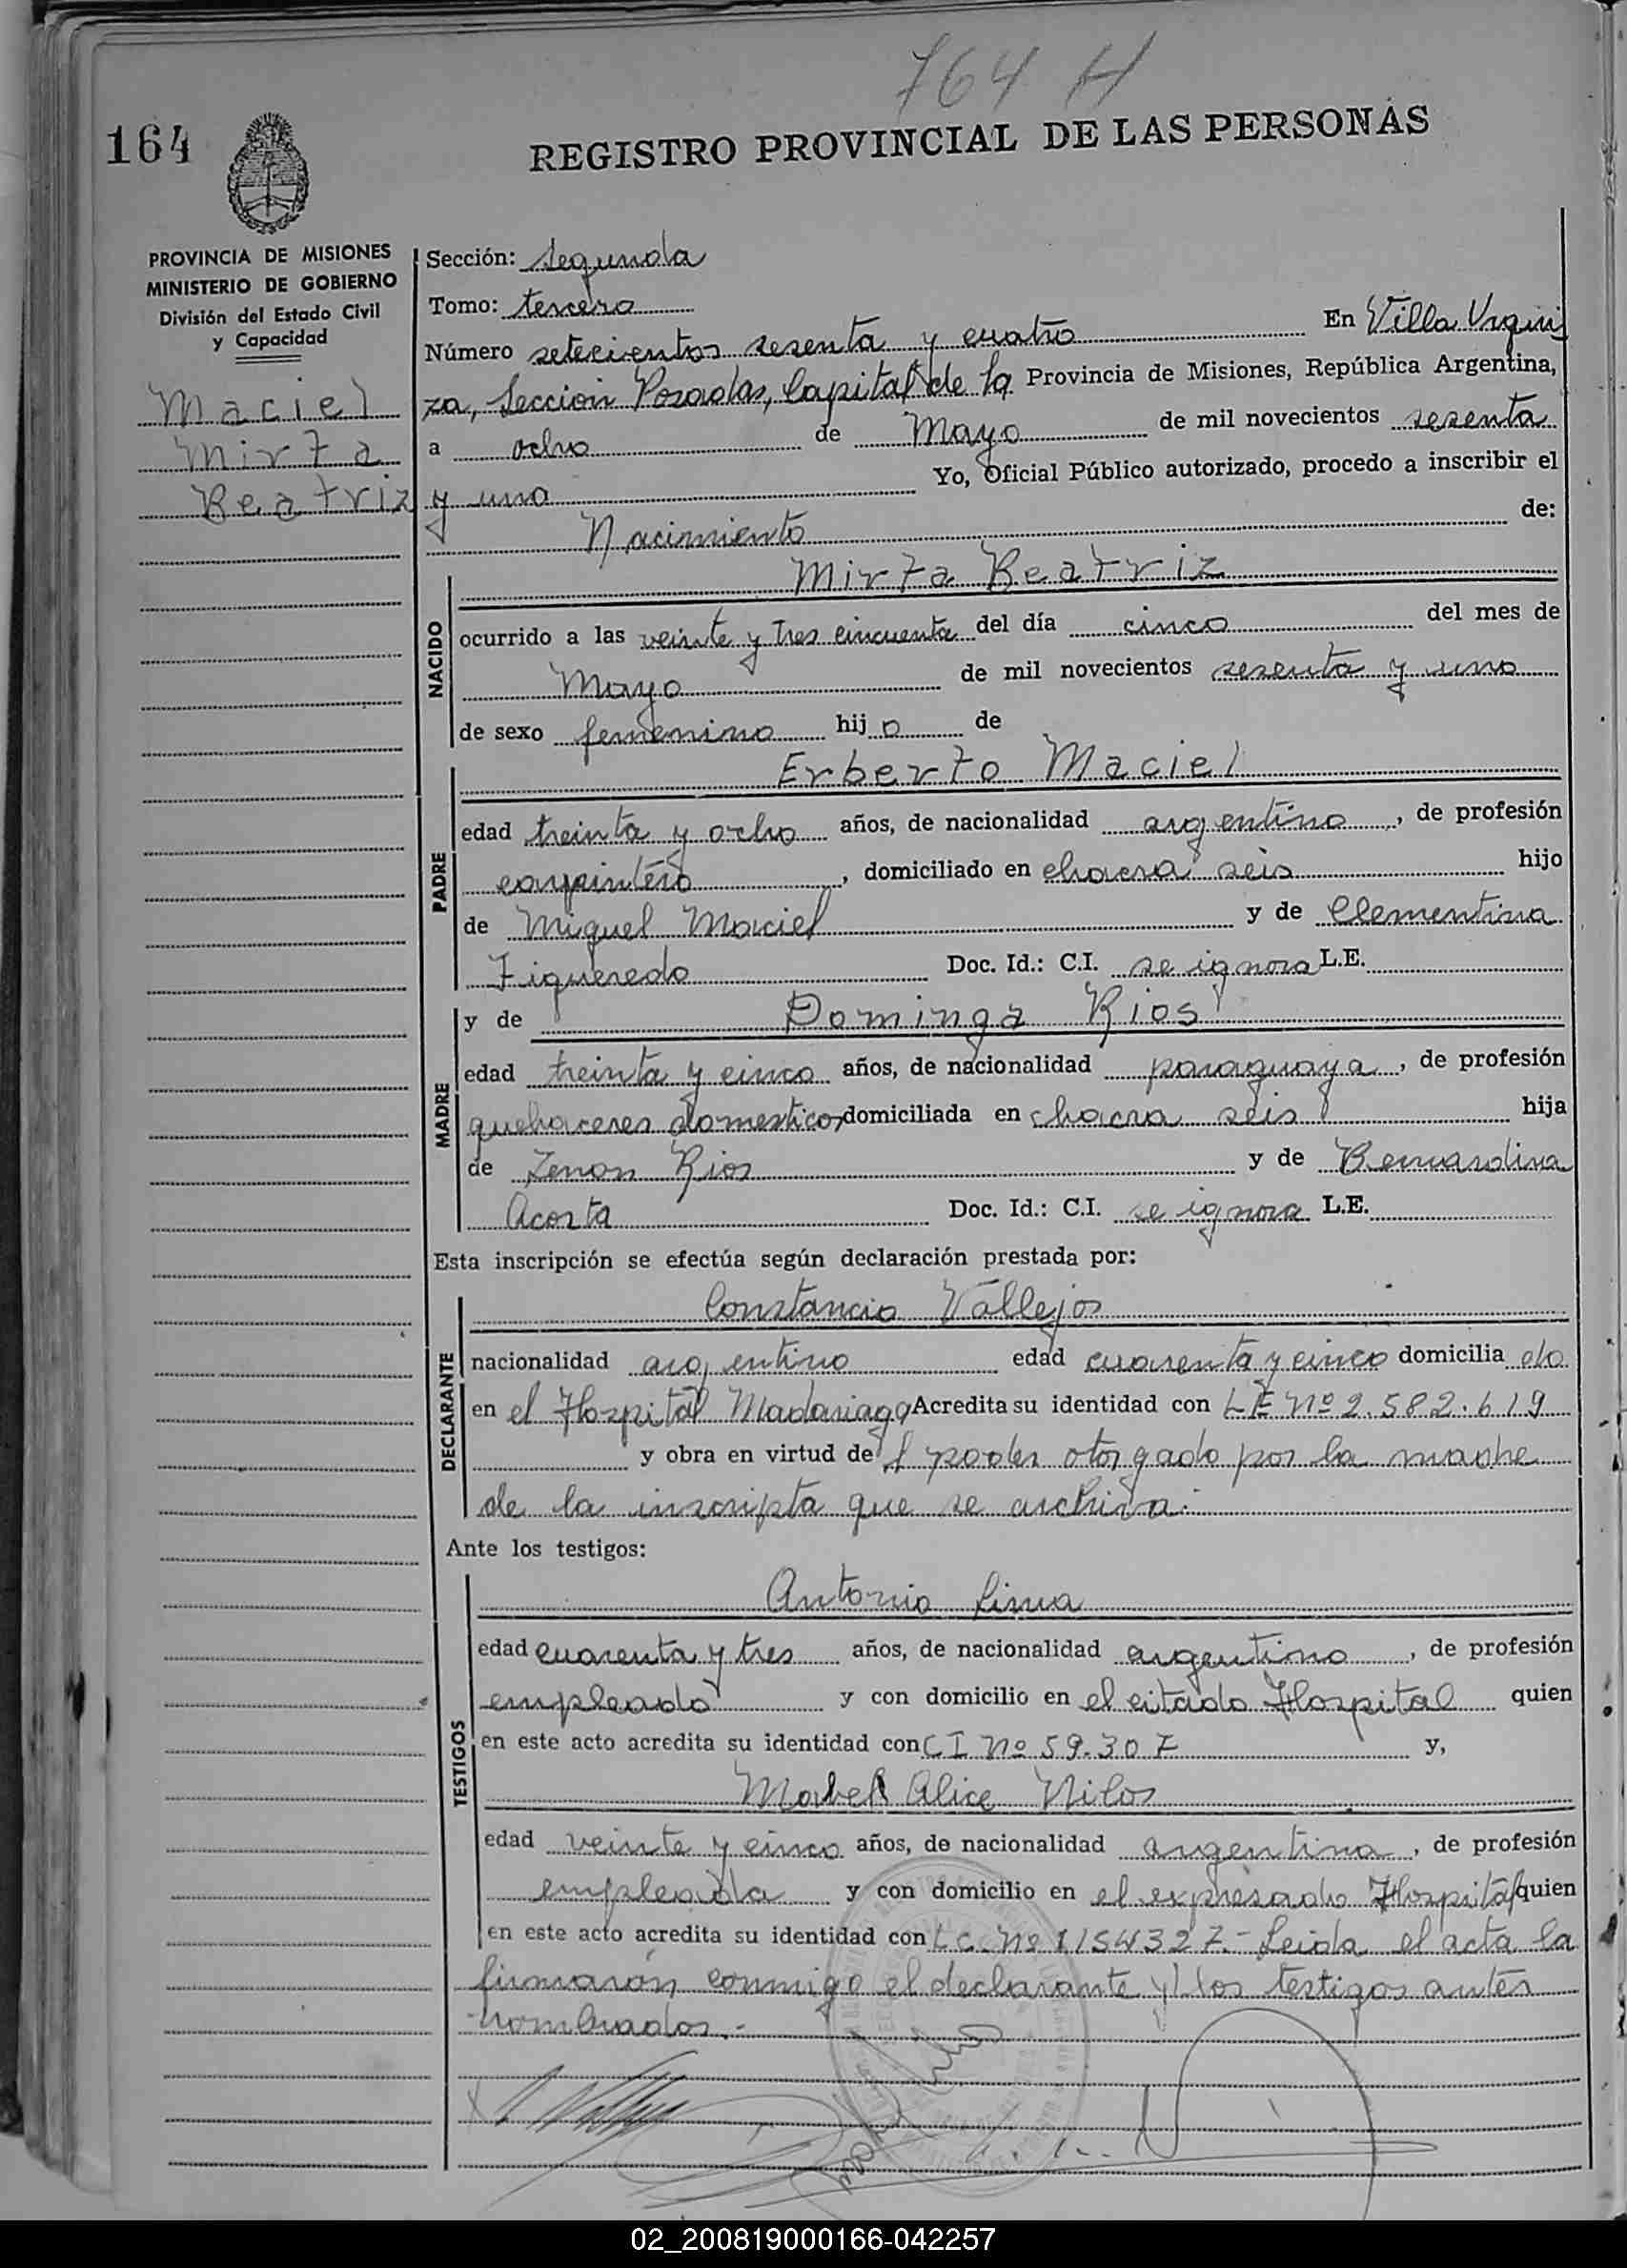 764 H
164
REGISTRO PROVINCIAL DE LAS PERSONAS
PROVINCIA DE MISIONES
MINISTERIO DE GOBIERNO
División del Estado Civil
y Capacidad
Maciel
Mirta
Beatriz
Sección: Segunda
Tomo: tercero
Número setecientos sesenta y cuatro En Villa Urqui
za, Sección Posadas, Capital de la Provincia de Misiones, República Argentina,
a ocho de Mayo de mil novecientos sesenta
y uno Yo, Oficial Público autorizado, procedo a inscribir el
Nacimiento de:
Mirta Beatriz
NACIDO
ocurrido a las veinte y tres cincuenta del día cinco del mes de
Mayo de mil novecientos sesenta y uno
de sexo femenino hijo de
PADRE
Erberto Maciel
edad treinta y ocho años, de nacionalidad argentino, de profesión
carpintero, domiciliado en chacra seis hijo
de Miguel Maciel y de Clementina
Figueredo Doc. Id.: C.I. se ignora L.E.
MADRE
y de Dominga Rios
edad treinta y cinco años, de nacionalidad paraguaya, de profesión
quehaceres domesticos domiciliada en chacra seis hija
de Zenon Rios y de Bernardina
Acosta Doc. Id.: C.I. se ignora L.E.
Esta inscripción se efectúa según declaración prestada por:
DECLARANTE
Constancio Vallejos
nacionalidad argentino edad cuarenta y cinco domicilia do
en el Hospital Madariaga Acredita su identidad con LE Nº 2.582.619
y obra en virtud del poder otorgado por la madre
de la inscripta que se archiva.
Ante los testigos:
TESTIGOS
Antonio Lima
edad cuarenta y tres años, de nacionalidad argentino, de profesión
empleado y con domicilio en el citado Hospital quien
en este acto acredita su identidad con CI Nº 59.307 y,
Mabel Alice
edad veinte y cinco años, de nacionalidad argentina, de profesión
empleada y con domicilio en el expresado Hospital quien
en este acto acredita su identidad con LC. Nº 1154327.- Leida el acta la
firmaron conmigo el declarante y los testigos antes
nombrados.-
02_200819000166-042257